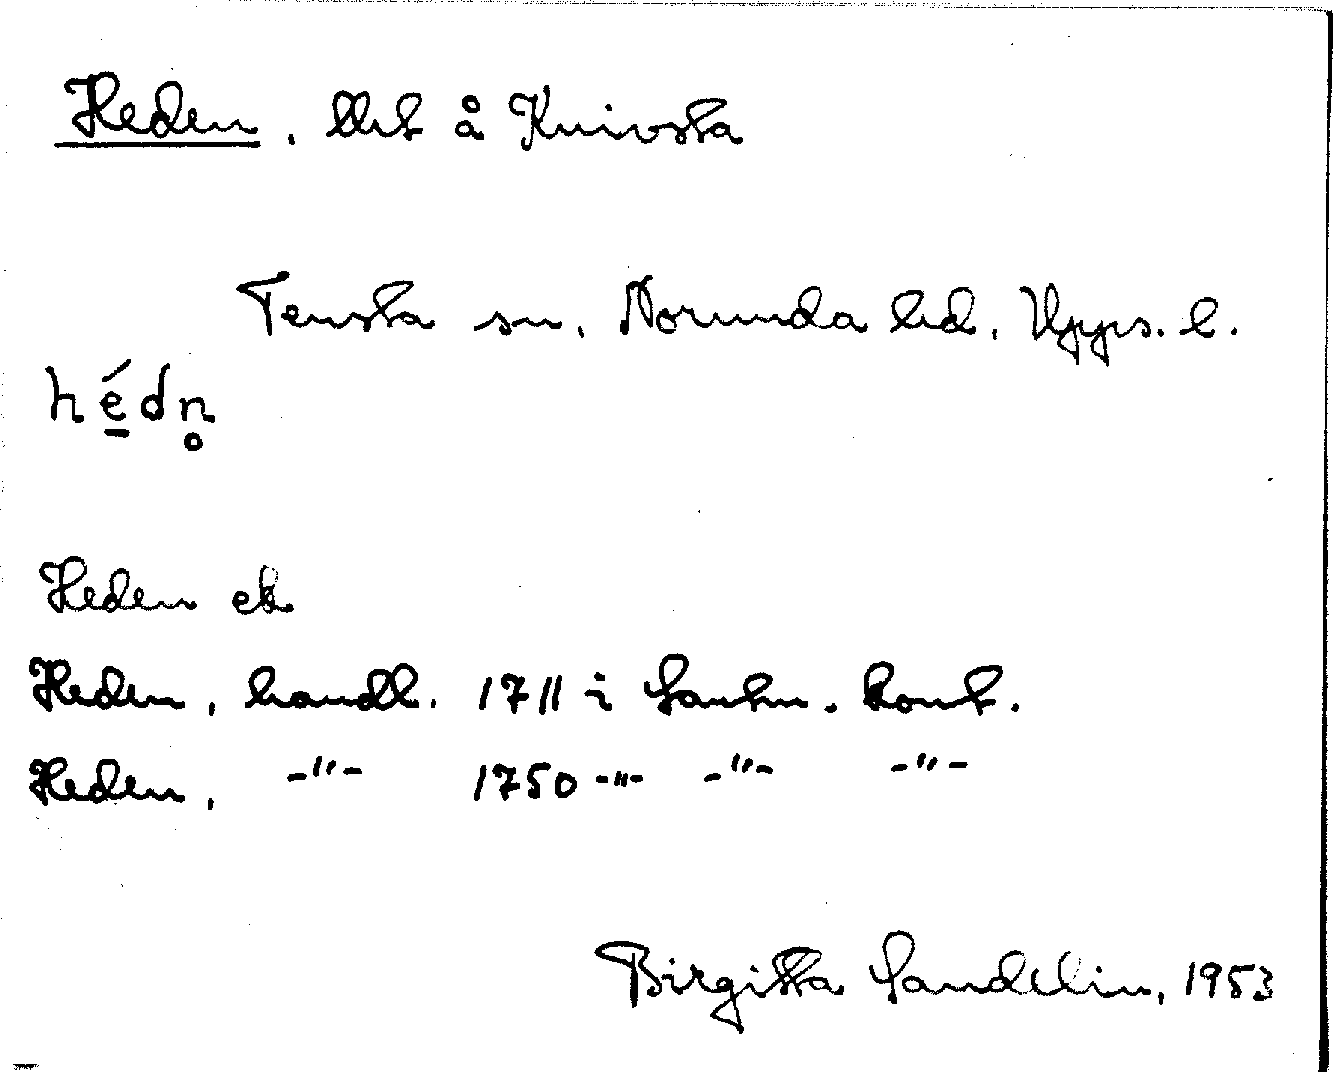 Heden, lht å Knivsta
Tensta sn, Norunda hd, Upps. l.
hé̱dn̥
Heden ek
Heden, handl. 1711 i Lantm. kont.
Heden, -"- 1750 -"- -"- -"-
Birgitta Sandelin, 1953